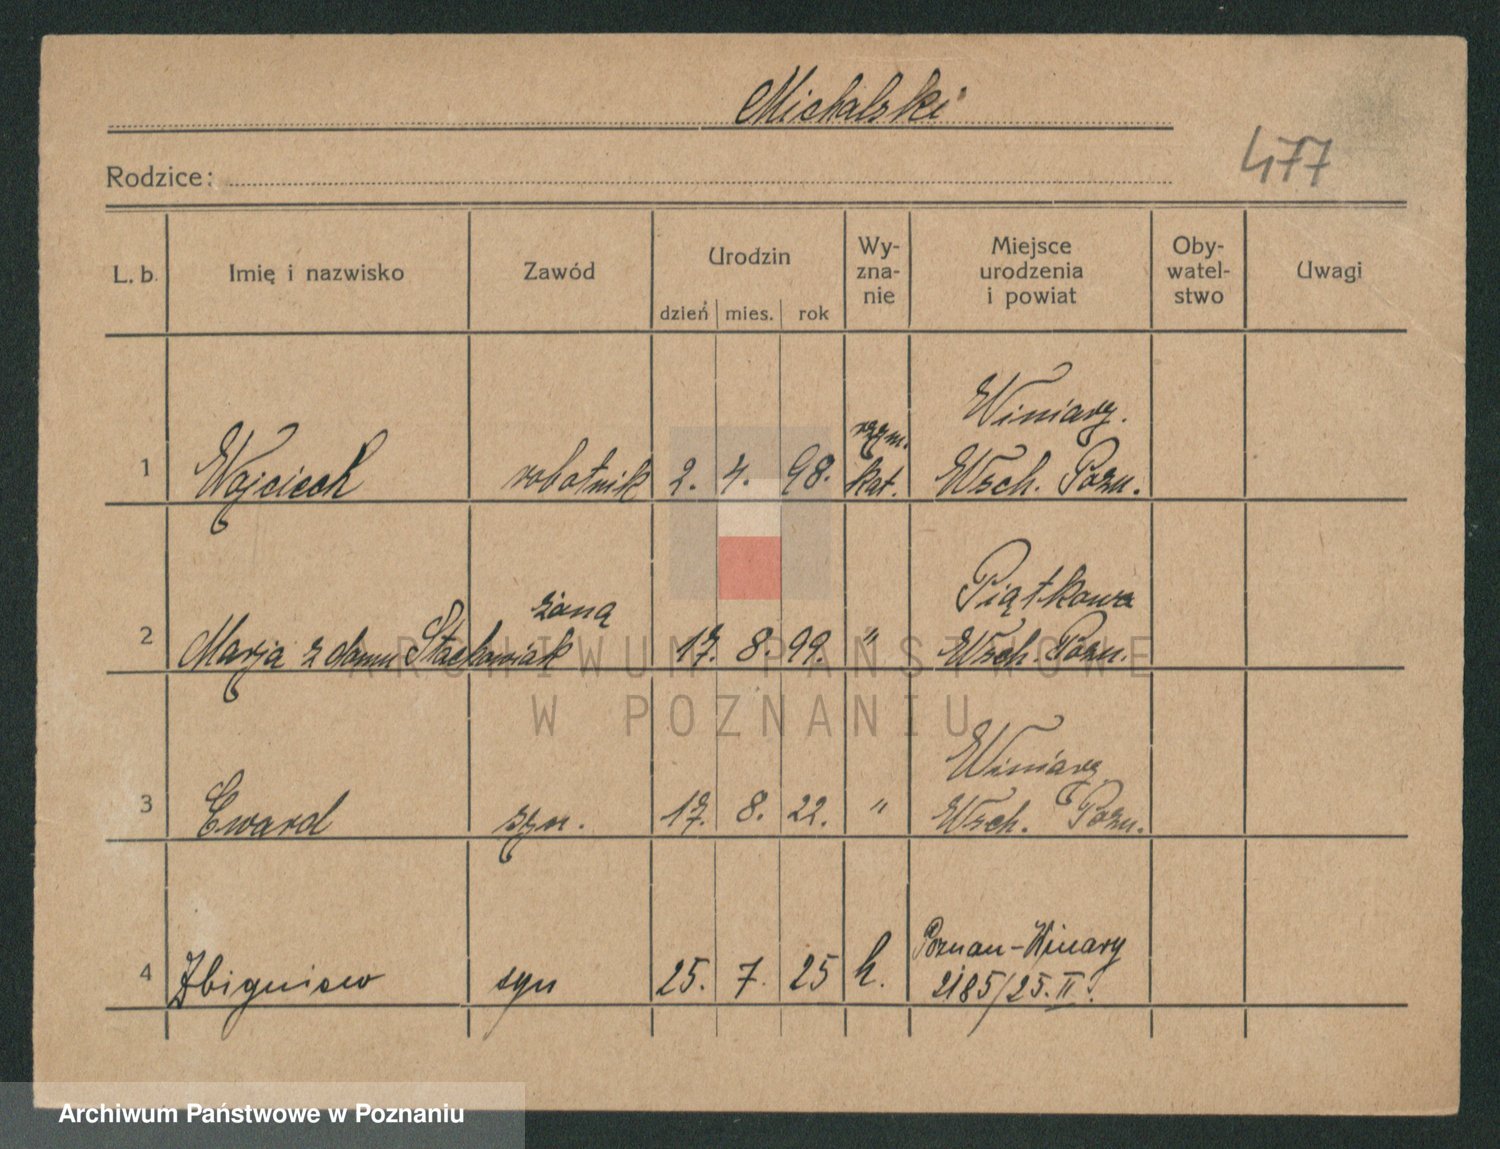 Michalski
477
Rodzice:
L. b. Imię i nazwisko Zawód Urodzin dzień mies. rok Wy-zna-nie Miejsce urodzenia i powiat Oby-watel-stwo Uwagi
Winiary.
rzym.
1 Wojciech robotnik 2. 4. 98. kat. Wsch. Pozn.
Piątkowo
żona
2 Marja z domu Stachowiak 17. 8. 99. " Wsch. Pozn.
Winiary
3 Eward syn. 17. 8. 22. " Wsch. Pozn.
Poznan-Winary
4 Zbigniew syn 25. 7. 25 k. 2185/25. II.
ARCHIWUM PAŃSTWOWE
W POZNANIU
Archiwum Państwowe w Poznaniu